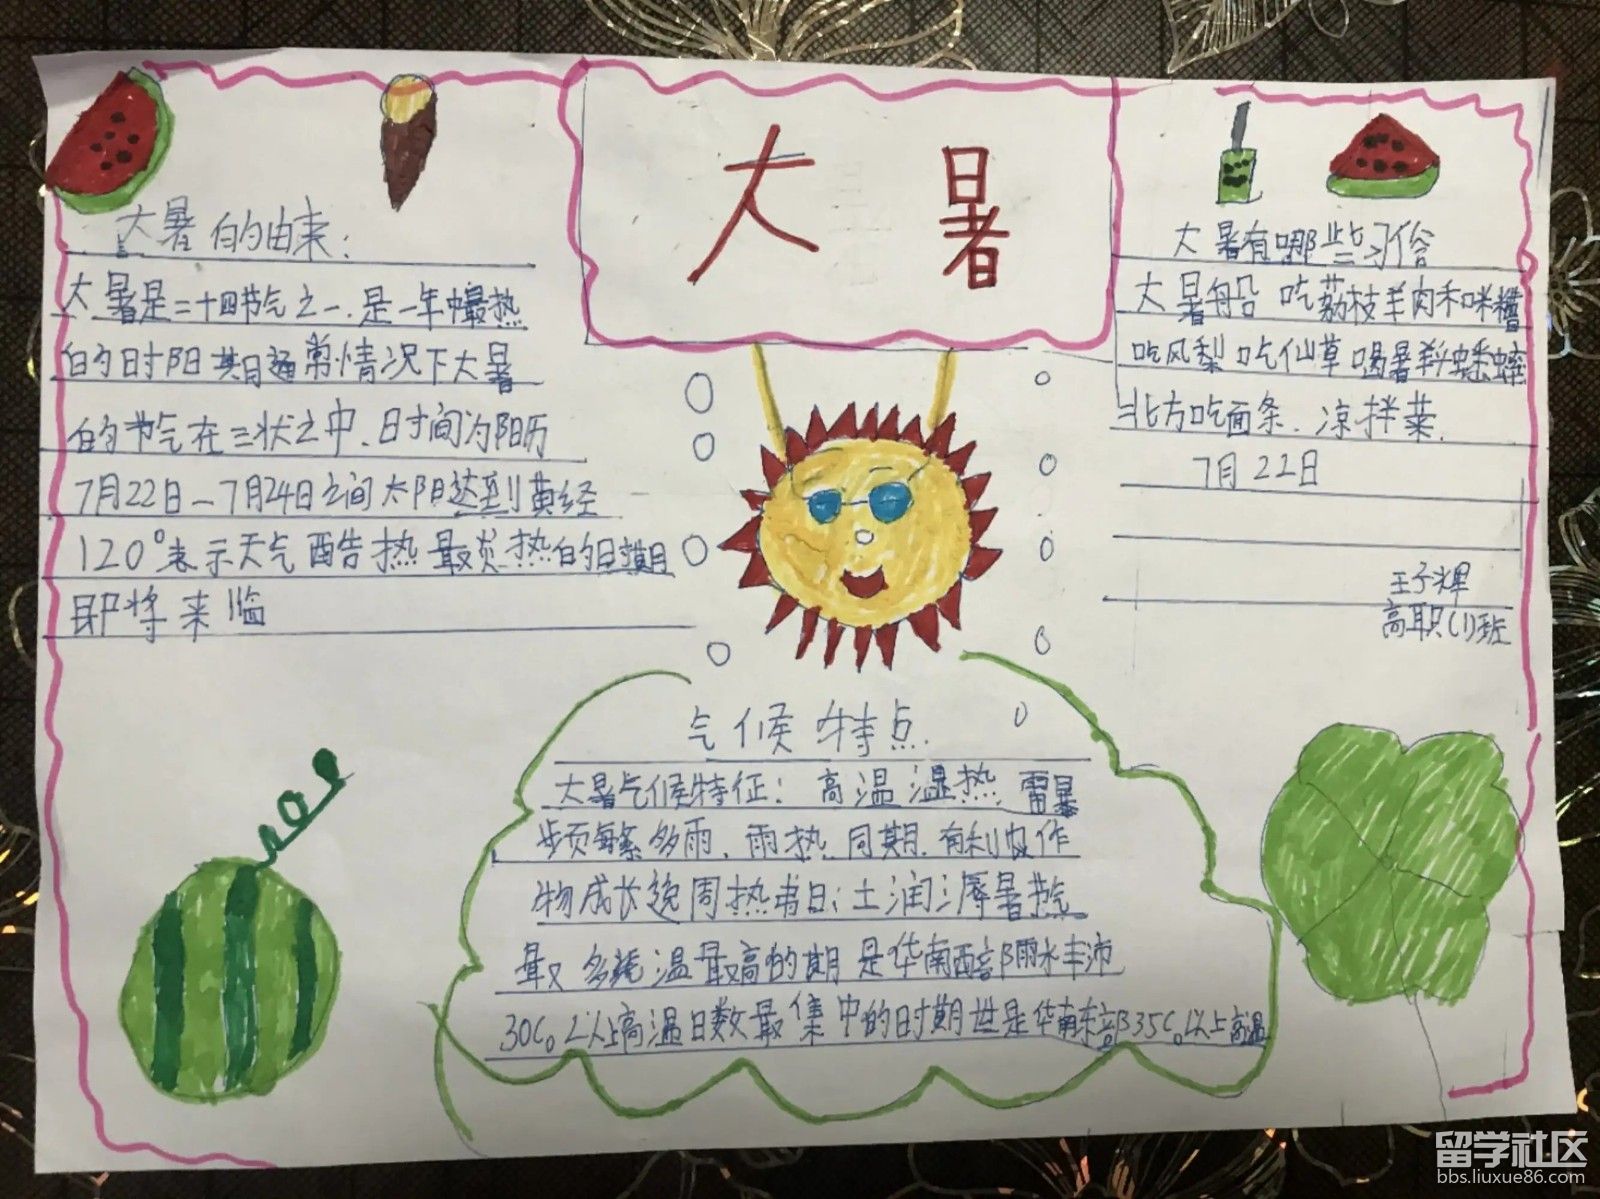 大暑
大暑的由来:
大暑是二十四节气之一.是一年中最热
的时阳期通常情况下大暑
的节气在三状之中.日时间为阳历
7月22日—7月24日之间太阳达到黄经
120°表示天气酷热最炎热的时期
即将来临
大暑有哪些习俗
大暑船 吃荔枝羊肉和咪糟
吃凤梨吃仙草喝暑羊蟋蟀
北方吃面条.凉拌菜.
7月22日
王子辉
高职(1)班
气候特点.
大暑气候特征: 高温湿热 雷暴
频繁多雨.雨热同期.有利农作
物成长 周热 日;土润溽暑
最多 温最高的期是华南 部雨水丰沛
30C。以上高温日数最集中的时期 是华南东部35C。以上高温
留学社区
bbs.liuxue86.com